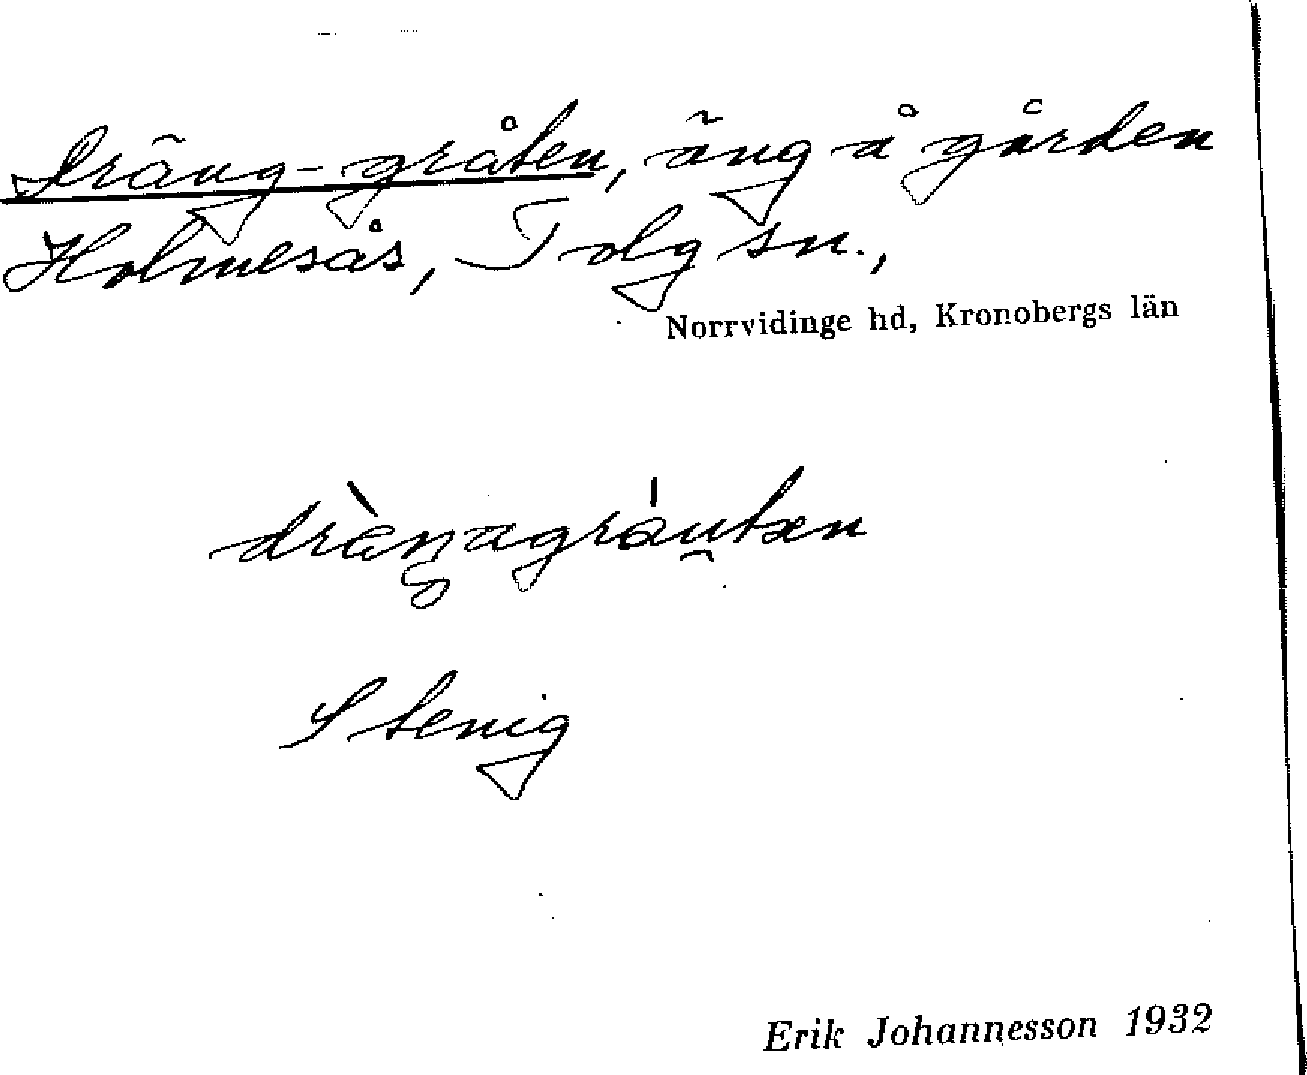 Dräng-gråten, äng å gården
Holmesås, Tolg sn.,
Norrvidinge hd, Kronobergs län
dräŋagráu̯tən
Stenig
Erik Johannesson 1932